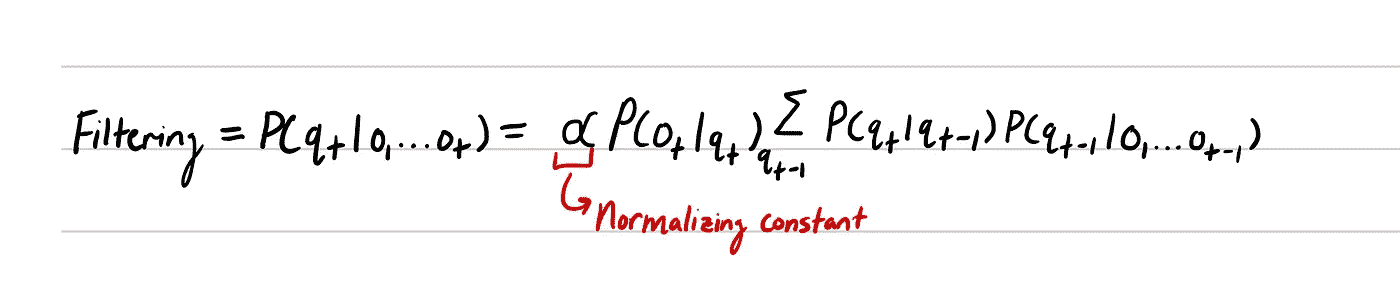 Filtering = P(q_t | o_1 ... o_t) = α P(o_t | q_t) Σ_{q_{t-1}} P(q_t | q_{t-1}) P(q_{t-1} | o_1 ... o_{t-1})
Normalizing constant